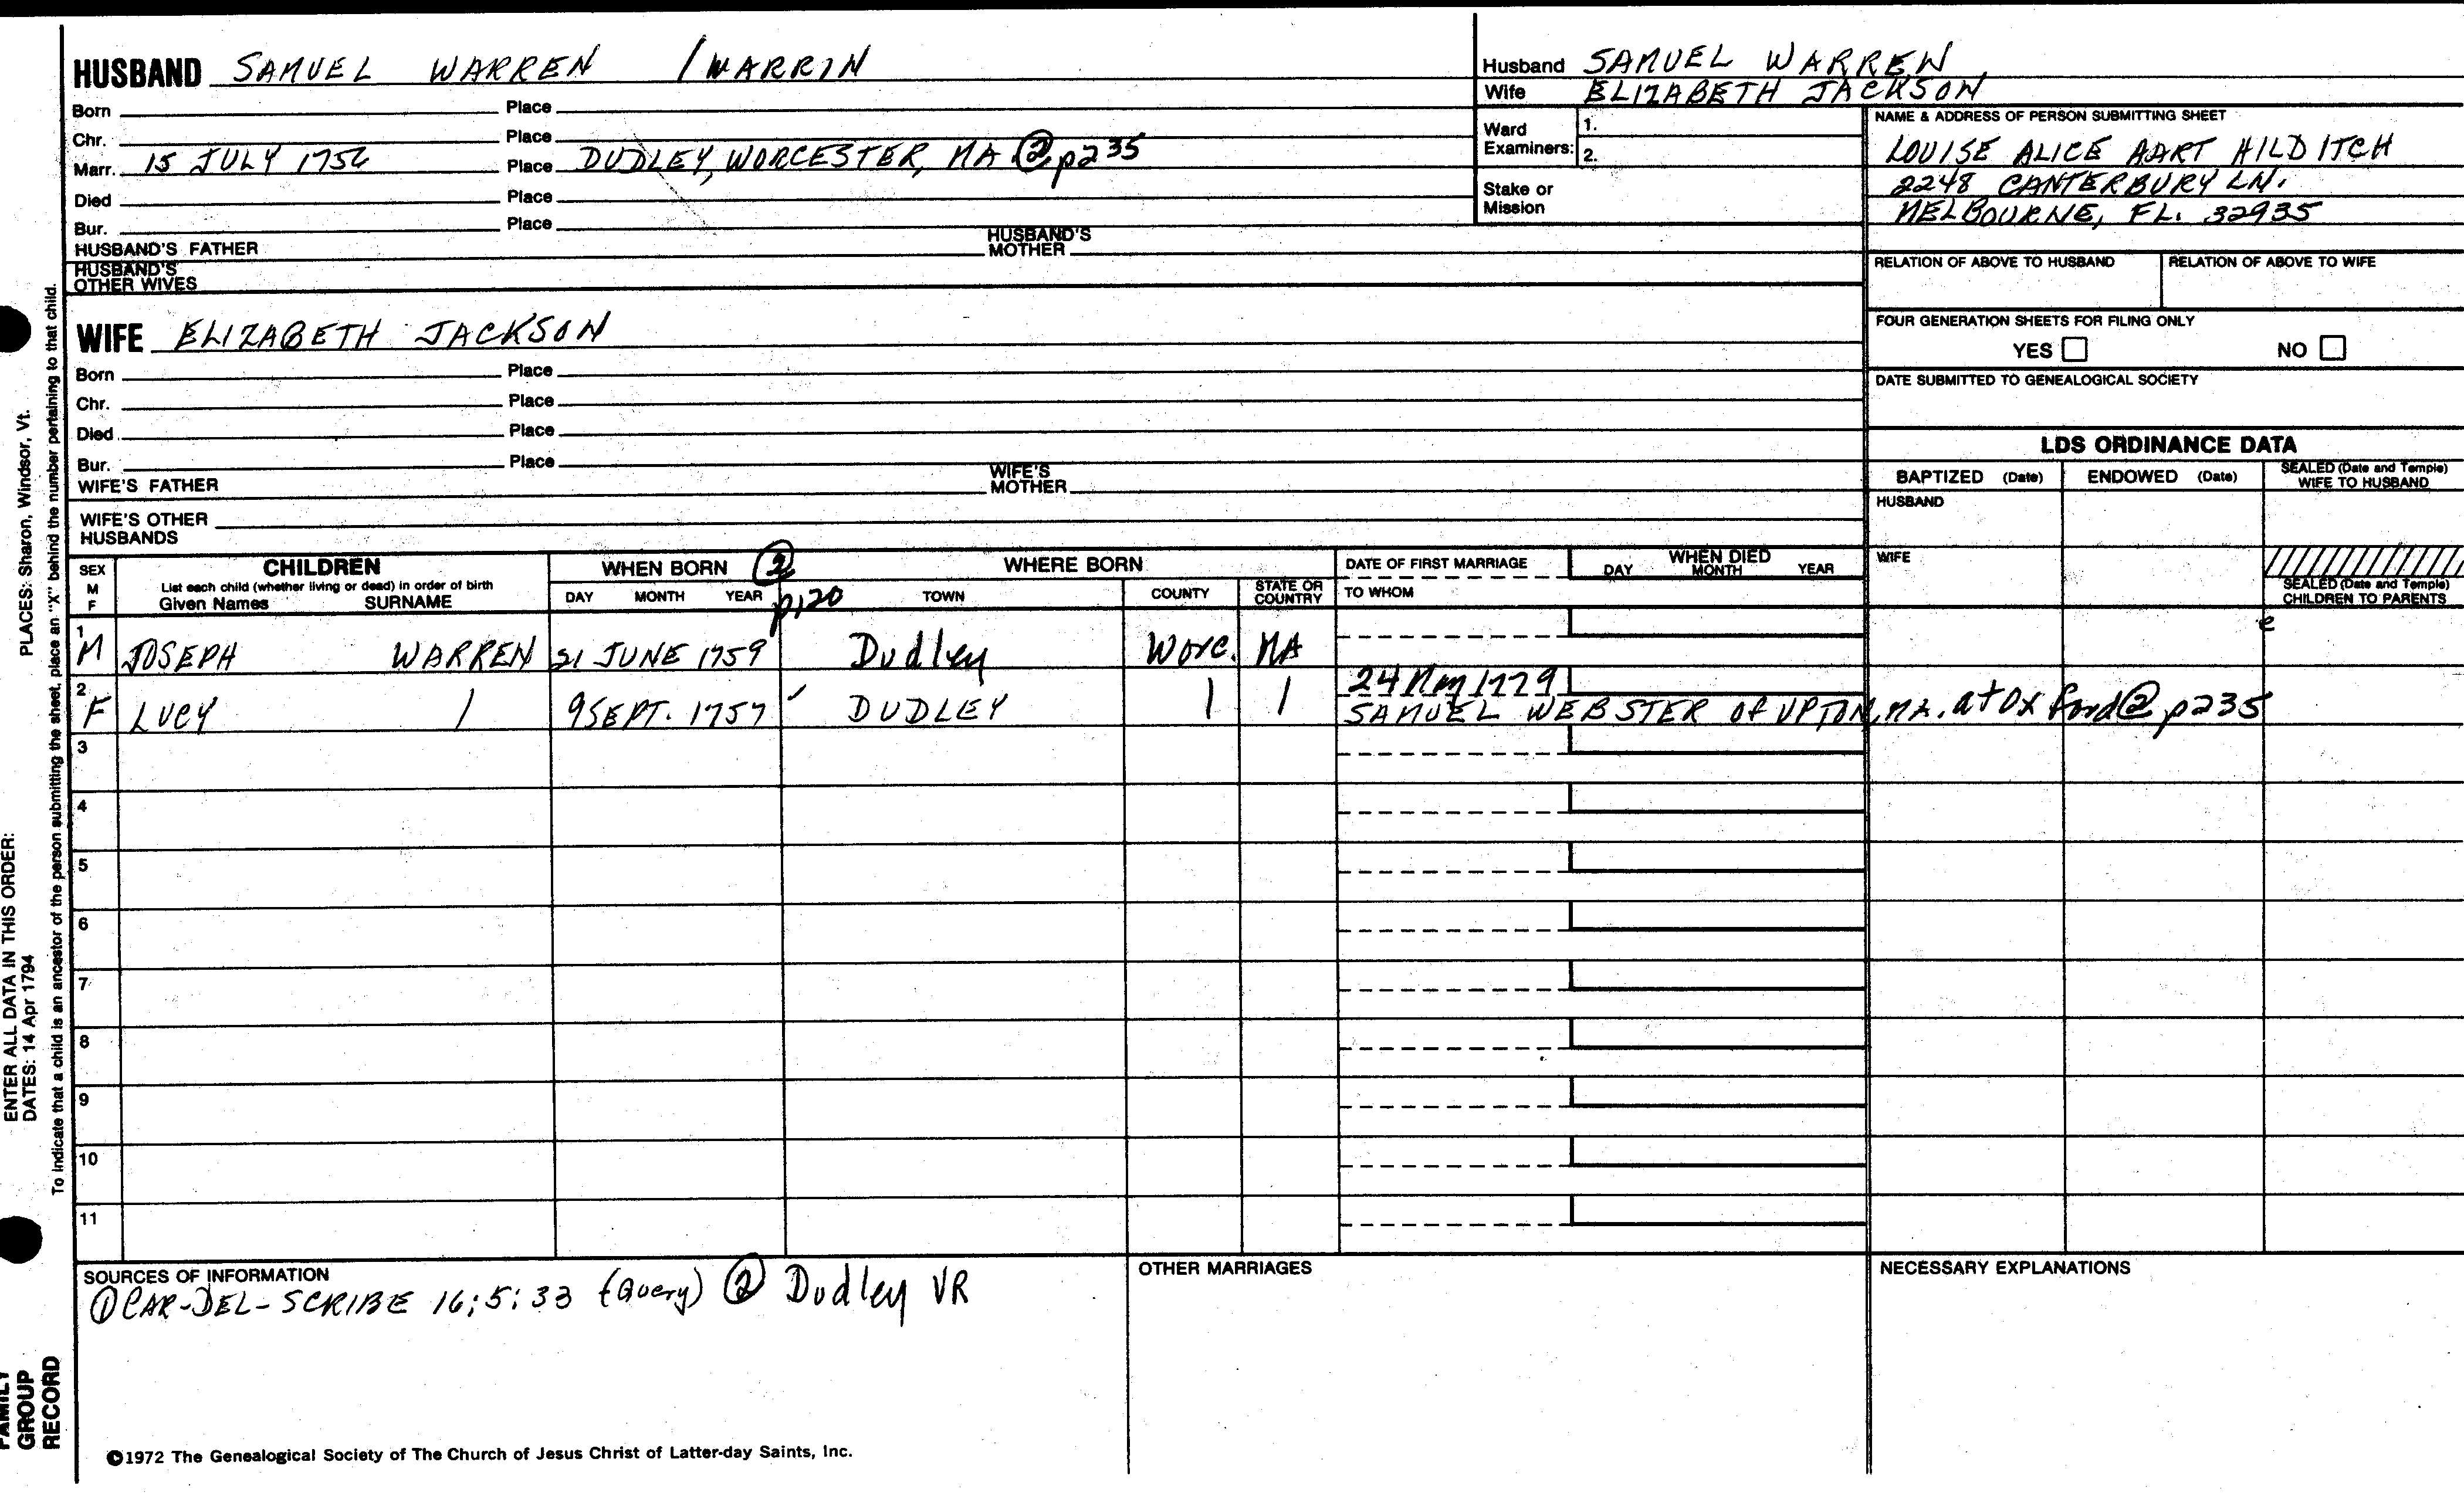 HUSBAND SAMUEL WARREN / WARRIN
Born Place
Chr. Place
Marr. 15 JULY 1756 Place DUDLEY, WORCESTER, MA ② p235
Died Place
Bur. Place
HUSBAND'S FATHER HUSBAND'S MOTHER
HUSBAND'S OTHER WIVES
Husband SAMUEL WARREN
Wife ELIZABETH JACKSON
Ward Examiners: 1.
2.
Stake or Mission
NAME & ADDRESS OF PERSON SUBMITTING SHEET
LOUISE ALICE AART HILDITCH
2248 CANTERBURY LN.
MELBOURNE, FL. 32935
RELATION OF ABOVE TO HUSBAND RELATION OF ABOVE TO WIFE
FOUR GENERATION SHEETS FOR FILING ONLY
YES NO
DATE SUBMITTED TO GENEALOGICAL SOCIETY
WIFE ELIZABETH JACKSON
Born Place
Chr. Place
Died Place
Bur. Place
WIFE'S FATHER WIFE'S MOTHER
WIFE'S OTHER HUSBANDS
LDS ORDINANCE DATA
BAPTIZED (Date) ENDOWED (Date) SEALED (Date and Temple) WIFE TO HUSBAND
HUSBAND
WIFE
SEALED (Date and Temple) CHILDREN TO PARENTS
SEX M F
CHILDREN
List each child (whether living or dead) in order of birth
Given Names SURNAME
WHEN BORN ② p120
DAY MONTH YEAR
WHERE BORN
TOWN COUNTY STATE OR COUNTRY
DATE OF FIRST MARRIAGE
TO WHOM
WHEN DIED
DAY MONTH YEAR
1 M JOSEPH WARREN 21 JUNE 1759 Dudley Worc. MA
e
24 May 1779
2 F LUCY / 9 SEPT. 1757 DUDLEY | | SAMUEL WEBSTER OF UPTON, MA. at Oxford ② p235
3
4
5
6
7
8
9
10
11
SOURCES OF INFORMATION
① CAR-DEL-SCRIBE 16:5:33 (Query) ② Dudley VR
OTHER MARRIAGES
NECESSARY EXPLANATIONS
©1972 The Genealogical Society of The Church of Jesus Christ of Latter-day Saints, Inc.
ENTER ALL DATA IN THIS ORDER:
DATES: 14 Apr 1794 PLACES: Sharon, Windsor, Vt.
To indicate that a child is an ancestor of the person submitting the sheet, place an "X" behind the number pertaining to that child.
FAMILY
GROUP
RECORD